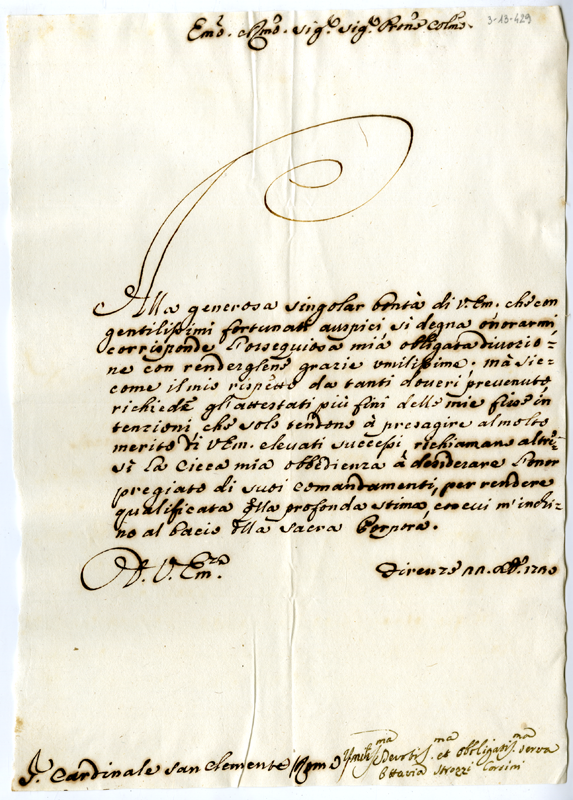 3-13-429
Emo. Rmo. Sig.r Sig.r Prone Colmo.
Alla generosa singolar bontà di V. Em. che con
gentilissimi fortunati auspici si degna onorarmi
corrisponde l'osseguiosa mia obligata divozio=
ne con rendergliene grazie umilissime. mà sic=
come il mio rispetto da tanti doveri prevenuto
richiede gli attestati più fini delle mie fisse in
tenzioni che solo tendono à presagire al molto
merito di V. Em. elevati successi richiamano altre=
sì la cieca mia obbedienza à desiderare l'onor
pregiato di suoi comandamenti, per rendere
qualificata la profonda stima, con cui m'inchi=
no al bacio della sacra Porpora.
D. V. Em.za
Firenze
S.r Cardinale San Clemente (Roma)
Umilis.ma Devotis.ma et obbligatis.ma serva
Ottavia Strozzi Corsini